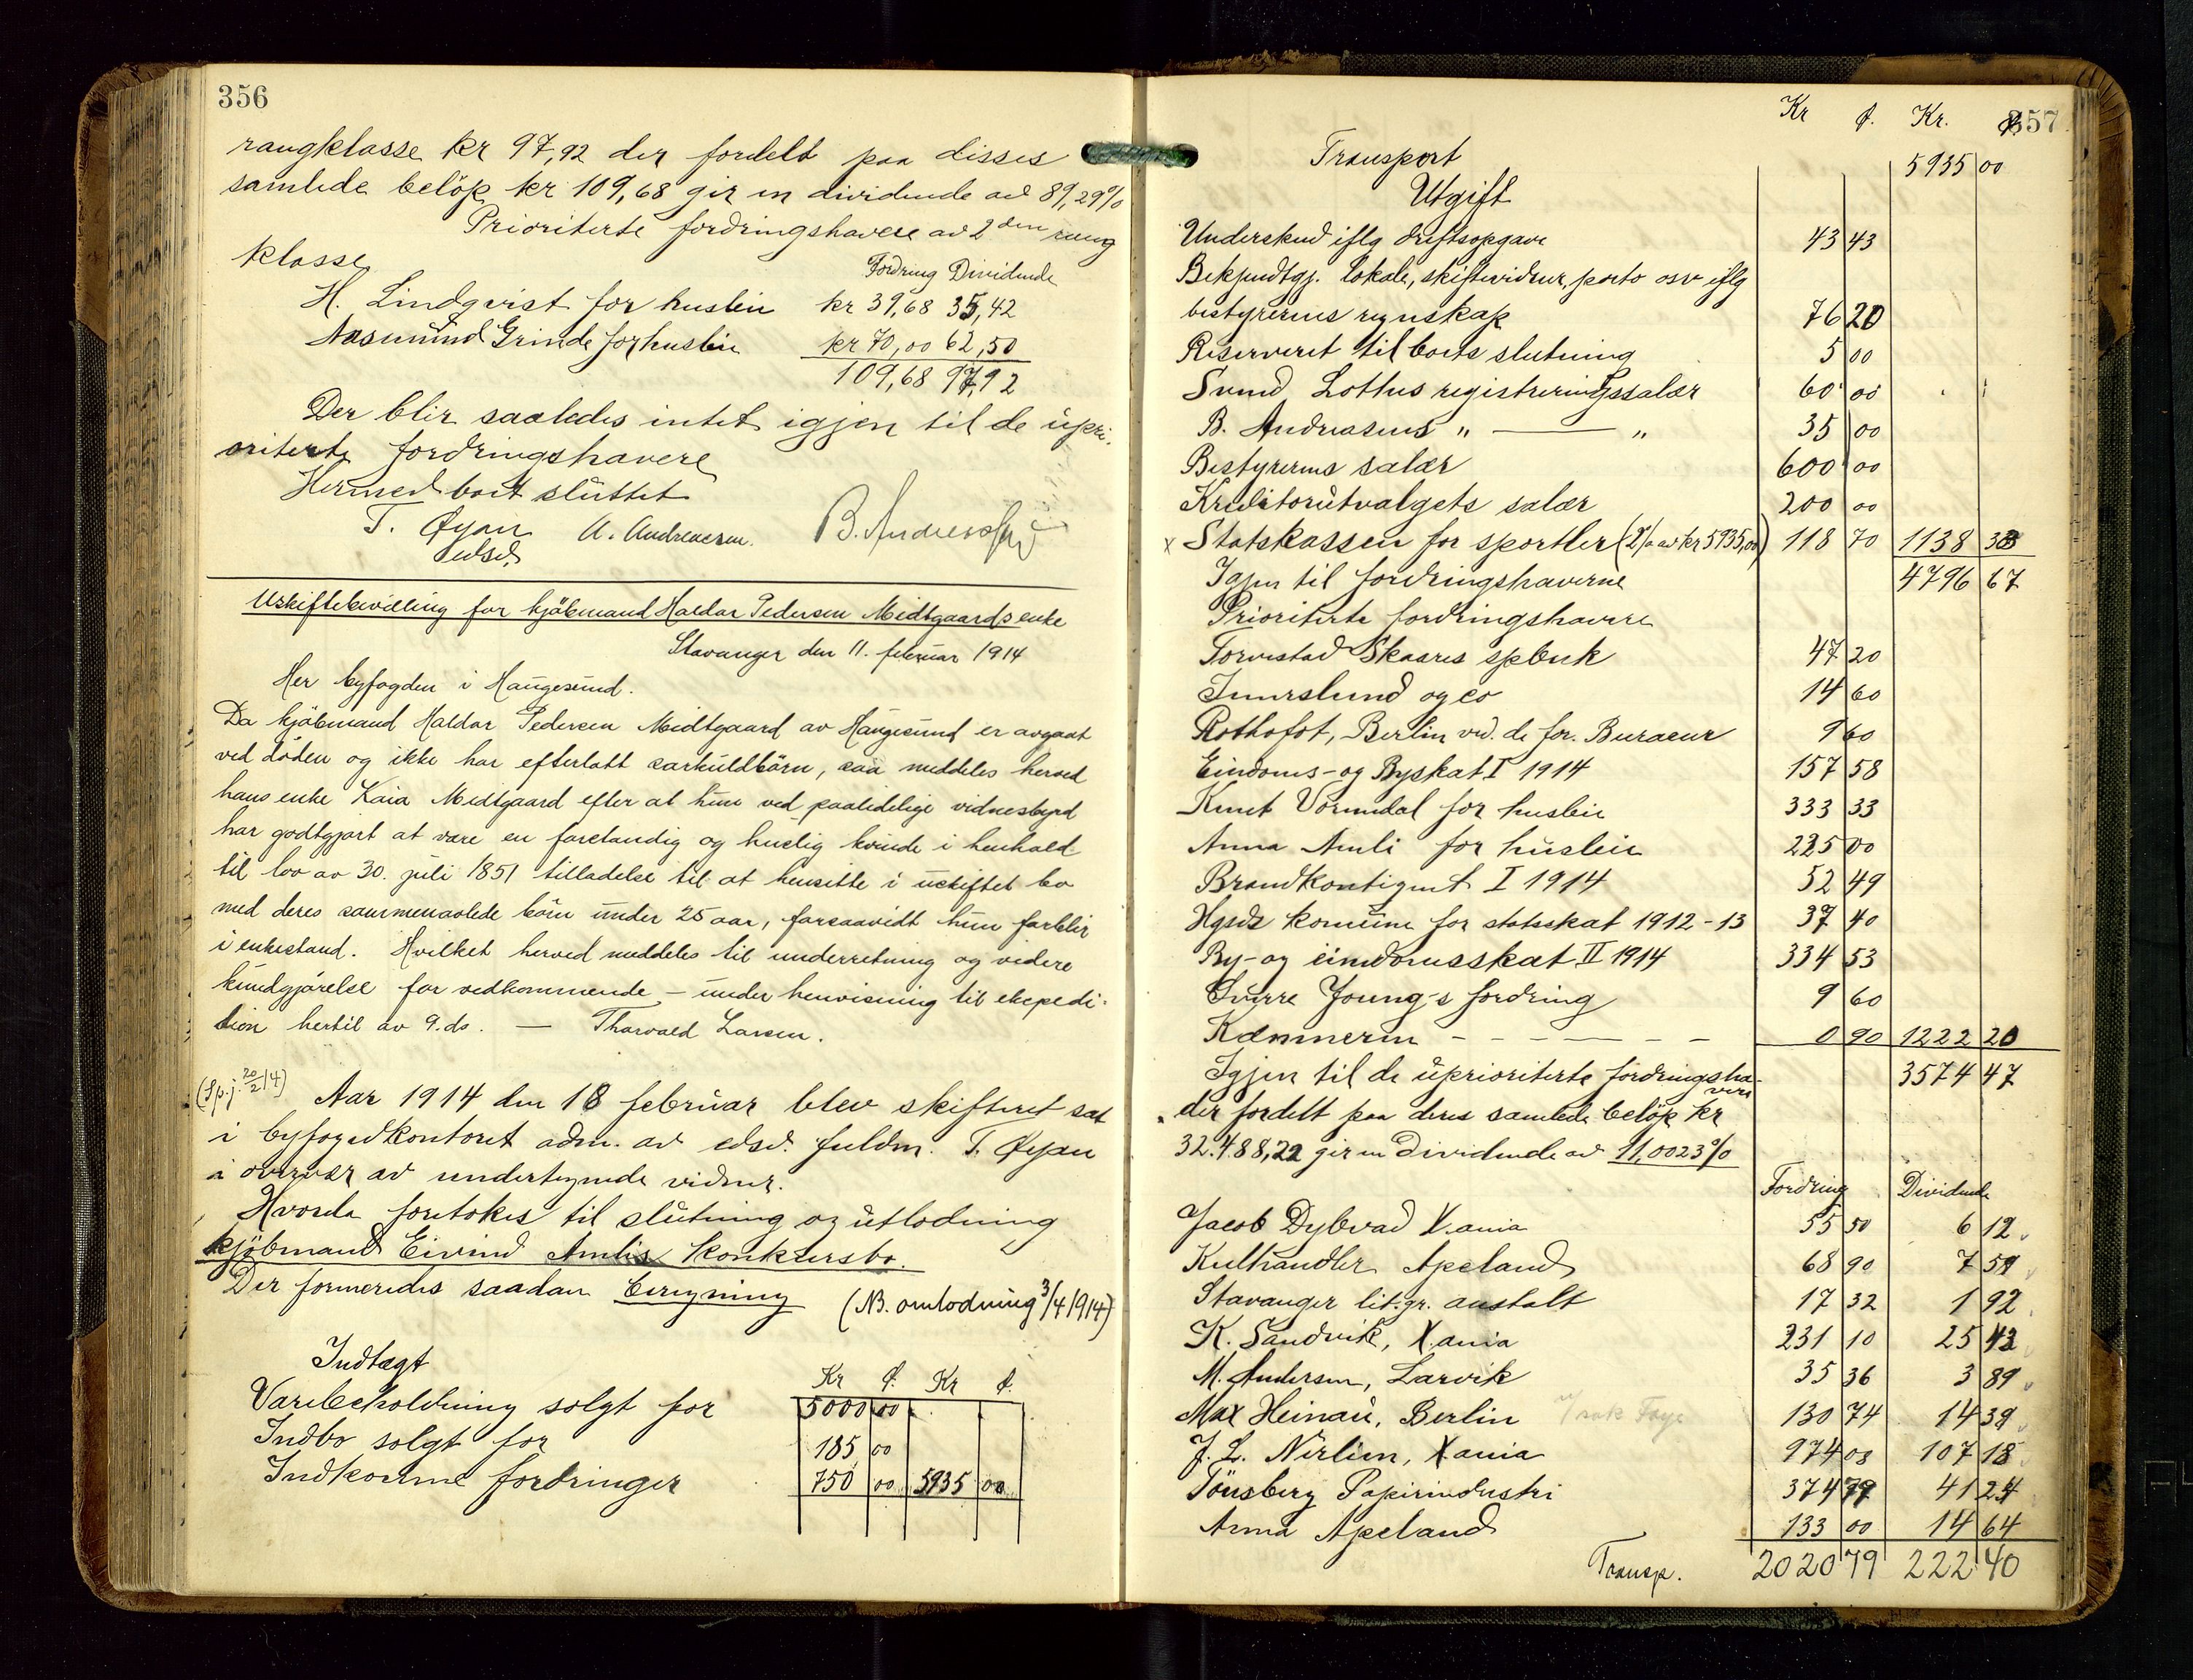 356
rangklasse kr 97,92 der fordelt paa disses
samlede belöp kr 109,68 gir en dividende av 89,29%
Prioriterte fordringshavere av 2den rang
klasse
Fordring Dividende
H. Lindqvist for husleie kr 39,68 35,42
Aasmund Grinde for husleie kr 70,00 62,50
109,68 97,92
Der blir saaledes intet igjen til de upri-
oriterte fordringshavere
Hermed boet sluttet
T. Øyan A. Andreasen. B. Andreassen
edsv.
Uskiftebevilling for kjöbmand Haldor Pedersen Midtgaards enke
Stavanger den 11. februar 1914
Her byfogden i Haugesund.
Da kjöbmand Haldor Pedersen Midtgaard av Haugesund er avgaat
ved döden og ikke har efterlatt særkuldbörn, saa meddeles herved
hans enke Kaia Midtgaard efter at hun ved paalidelige vidnesbyrd
har godtgjort at være en forstandig og huslig kvinde i henhold
til lov av 30. juli 1851 tilladelse til at hensitte i uskiftet bo
med deres sammenavlede börn under 25 aar, forsaavidt hun forblir
i enkestand. Hvilket herved meddeles til underretning og videre
kundgjörelse for vedkommende - under henvisning til ekspedi-
tion hertil av 9. ds. — Thorvald Larsen.
(Sp.j. 20/2 14) Aar 1914 den 18 februar blev skifteret sat
i byfogedkontoret adm. av edsv. fuldm. T. Øyan
i overvær av undertegnede vidner.
Hvorda foretokes til slutning og utlodning
kjöbmand Eivind Amlis konkursbo.
Der formeredes saadan beregning (NB. omlodning 3/4 1914)
Indtægt
Kr ø. Kr ø.
Varebeholdning solgt for 5000 00
Indbo solgt for 185 00
Indkomne fordringer 750 00 5935 00
357
Kr ø. Kr. ø.
Transport 5935 00
Utgift
Underskud iflg driftsopgave 43 43
Bekjendtgj. lokale, skiftevidner, porto osv iflg
bestyrerens regnskap 76 20
Reserveret til boets slutning 5 00
Svend Lothes registreringssalær 60 00
B. Andreasens " — " 35 00
Bestyrerens salær 600 00
Kreditorutvalgets salær 200 00
x Statskassen for sportler (2% av kr 5935,00) 118 70 1138 33
Igjen til fordringshaverne 4796 67
Prioriterte fordringshavere
Torvestad Skaares spbnk 47 20
Immerslund og co 14 60
Rothofot, Berlin ved. de for. Buraeur 9 60
Eiendoms- og Byskat I 1914 157 58
Knut Vormedal for husleie 333 33
Anna Amli for husleie 225 00
Brandkontigent I 1914 52 49
Hgsds komune for statsskat 1912-13 37 40
By- og eiendomsskat II 1914 334 53
Sverre Young's fordring 9 60
Kæmneren - - - - - - 0 90 1222 20
Igjen til de uprioriterte fordringsha-
vere 3574 47
der fordelt paa deres samlede belöp kr
32.488,22 gir en dividende av 11,0023%
Fordring Dividende
Jacob Dybvad X.ania 55 50 6 12
Kulhandler Apeland 68 90 7 59
Stavanger lit.gr. anstalt 17 32 1 92
K. Sandvik, X.ania 231 10 25 43
M. Andersen, Larvik 35 36 3 89
Max Heinau, Berlin 130 74 14 39
J. L. Nirlien, X.ania 974 08 107 18
Tönsberg Papirindustri 374 79 41 24
Anna Apeland 133 00 14 64
Transp. 2020 79 222 40